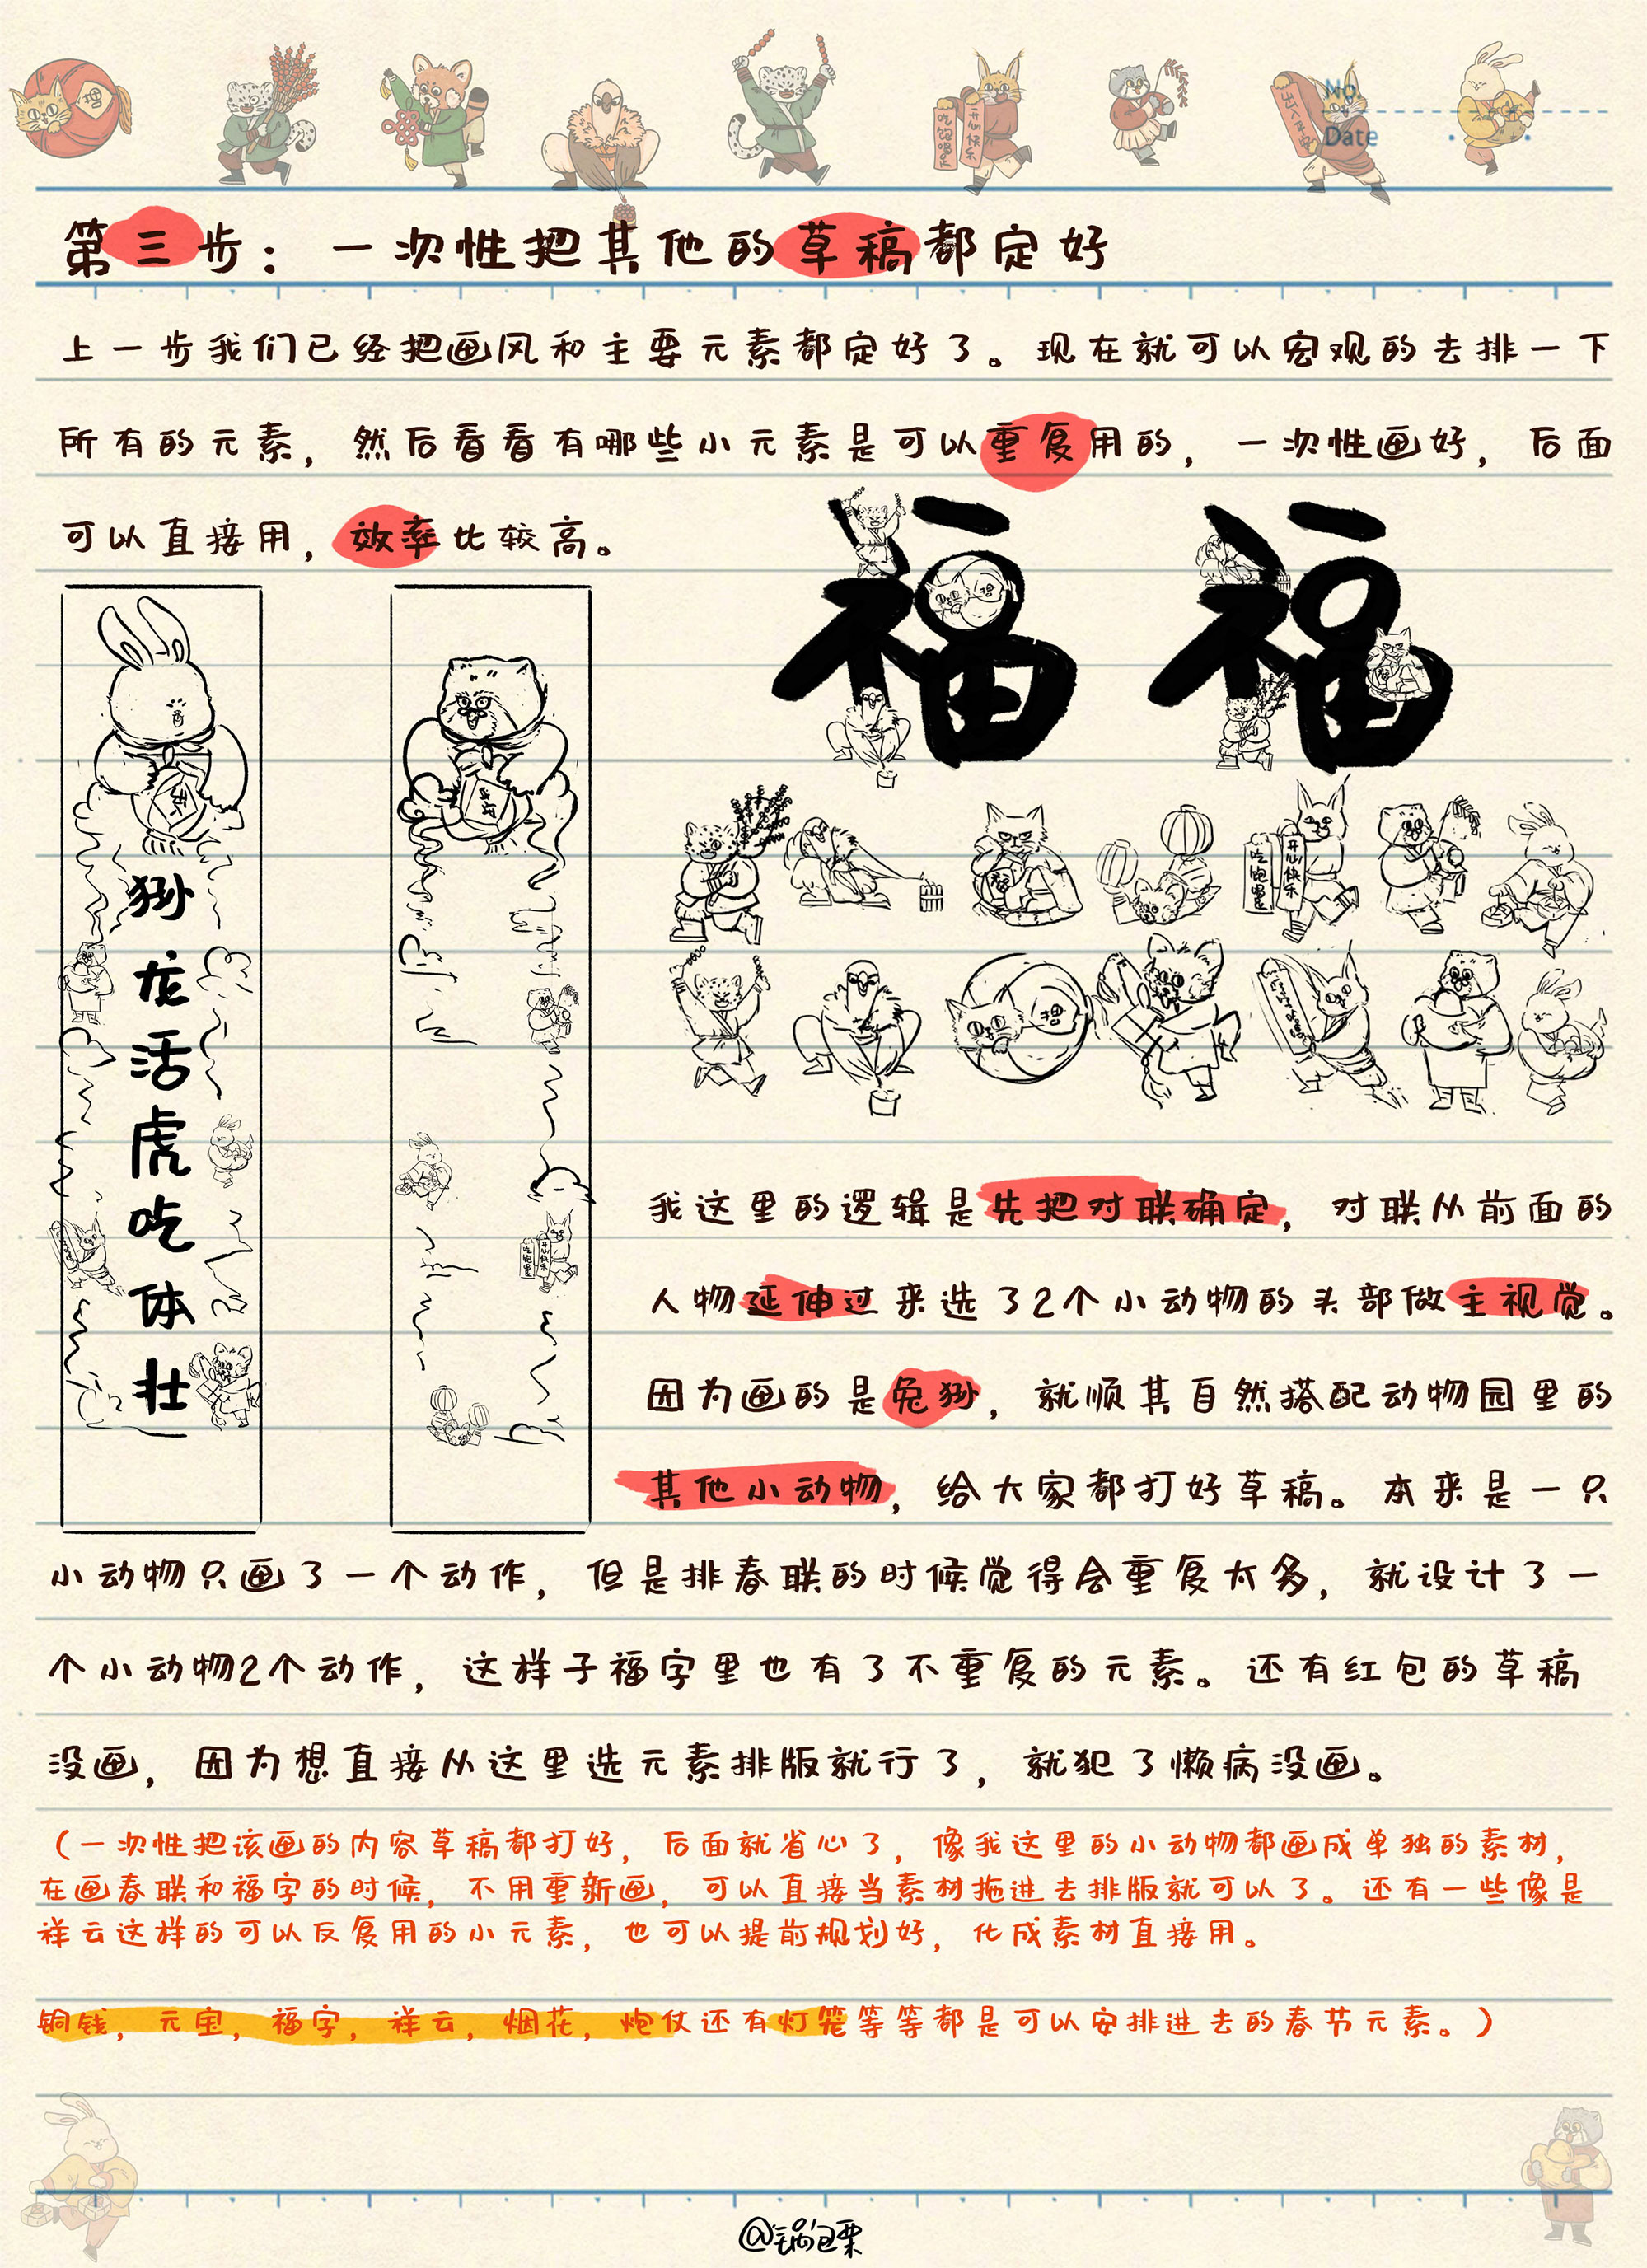 No.
Date
第三步：一次性把其他的草稿都定好
上一步我们已经把画风和主要元素都定好了。现在就可以宏观的去排一下
所有的元素，然后看看有哪些小元素是可以重复用的，一次性画好，后面
可以直接用，效率比较高。
福 福
狲龙活虎吃体壮
吃饱喝足
开心快乐
我这里的逻辑是先把对联确定，对联从前面的
人物延伸过来选了2个小动物的头部做主视觉。
因为画的是兔狲，就顺其自然搭配动物园里的
其他小动物，给大家都打好草稿。本来是一只
小动物只画了一个动作，但是排春联的时候觉得会重复太多，就设计了一
个小动物2个动作，这样子福字里也有了不重复的元素。还有红包的草稿
没画，因为想直接从这里选元素排版就行了，就犯了懒病没画。
（一次性把该画的内容草稿都打好，后面就省心了，像我这里的小动物都画成单独的素材，
在画春联和福字的时候，不用重新画，可以直接当素材拖进去排版就可以了。还有一些像是
祥云这样的可以反复用的小元素，也可以提前规划好，化成素材直接用。
铜钱，元宝，福字，祥云，烟花，炮仗还有灯笼等等都是可以安排进去的春节元素。）
@锅包栗